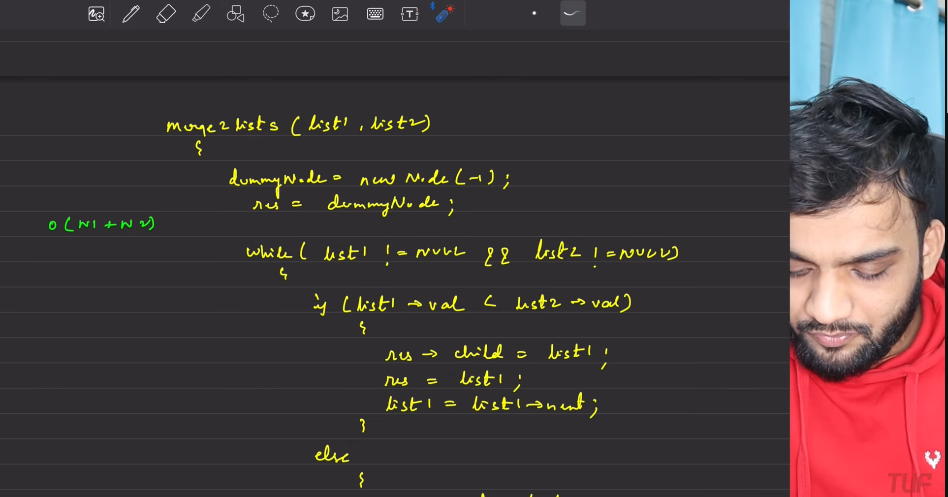 merge2lists (list1, list2)
{
dummyNode = new Node(-1);
res = dummyNode;
O(N1 + N2)
while( list1 != NULL && list2 != NULL)
{
if (list1 → val < list2 → val)
{
res → child = list1;
res = list1;
list1 = list1 → next;
}
else
{
TUF